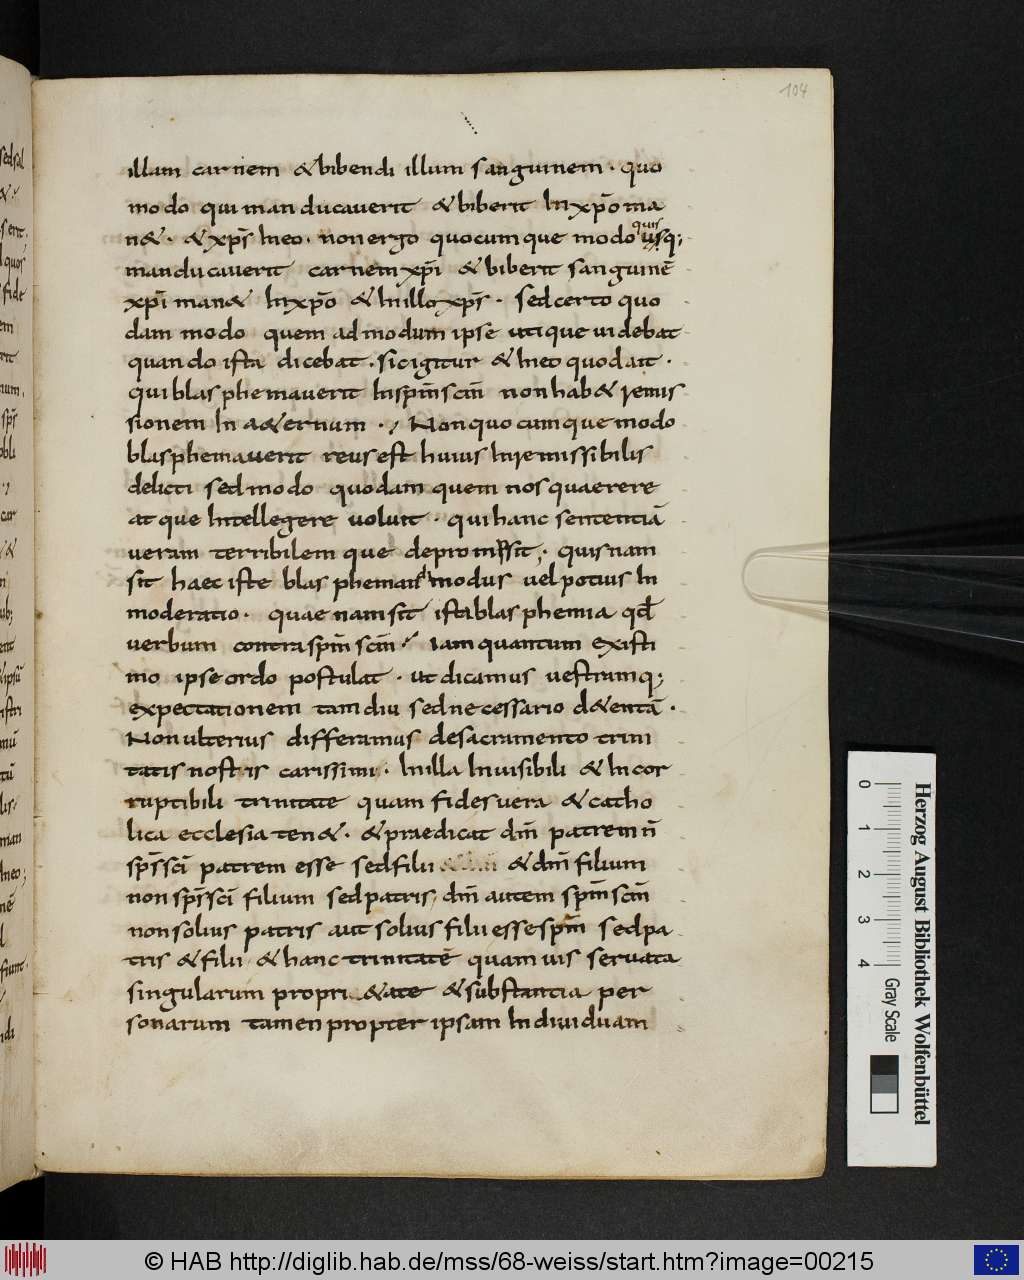 104
illam carnem & bibendi illum sanguinem · quo
modo qui manducauerit & biberit In xp̄o ma
n& · & xp̄s In eo · non ergo quocumque modo quis usq;
manducauerit carnem xp̄i & biberit sanguinē
xp̄i man& In xp̄o & In illo xp̄s · sed certo quo
dam modo quem admodum ipse utique uidebat
quando ista dicebat · sic igitur & In eo quod ait ·
qui blasphemauerit In spm̄ scm̄ non hab& remis
sionem In a&ernum · Non quocumque modo
blasphemauerit reus est huius Inremissibilis
delicti sed modo quodam quem nos quaerere
atque Intellegere uoluit · qui hanc sententiā
ueram terribilemque depromssit; quisnam
sit haec iste blasphemandi modus uel potius In
moderatio · quaenam sit ista blasphemia qd̄
uerbum contra spm̄ scm̄ Iam quantum existi
mo ipse ordo postulat · ut dicamus uestramq;
expectationem tam diu sed necessario d&entā ·
Non ulterius differamus de sacramento trini
tatis nostris carissimi · In illa Inuisibili & Incor
ruptibili trinitate quam fides uera & catho
lica ecclesia ten& · & praedicat dm̄ patrem n̄
sps̄ sci̅ patrem esse sed filii & dm̄ filium
non sps̄ sci̅ filium sed patris, dm̄ autem spm̄ scm̄
non solius patris aut solius filii esse spm̄ sed pa
tris & filii & hanc trinitatē quamuis seruata
singularum propri&ate & substantia per
sonarum tamen propter ipsam Indiuiduam
0 1 2 3 4
Gray Scale
Herzog August Bibliothek Wolfenbüttel
© HAB http://diglib.hab.de/mss/68-weiss/start.htm?image=00215